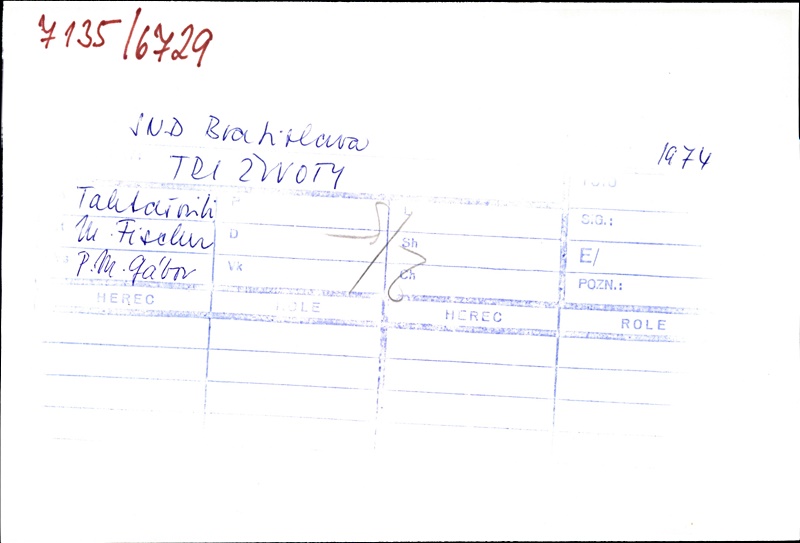 7135/6729
SND Bratislava
TRI ŽIVOTY
1974
M. Fischer
P. M. Gábor
D
Vk
Sh
Ch
S.G.:
E/
POZN.:
HEREC ROLE HEREC ROLE